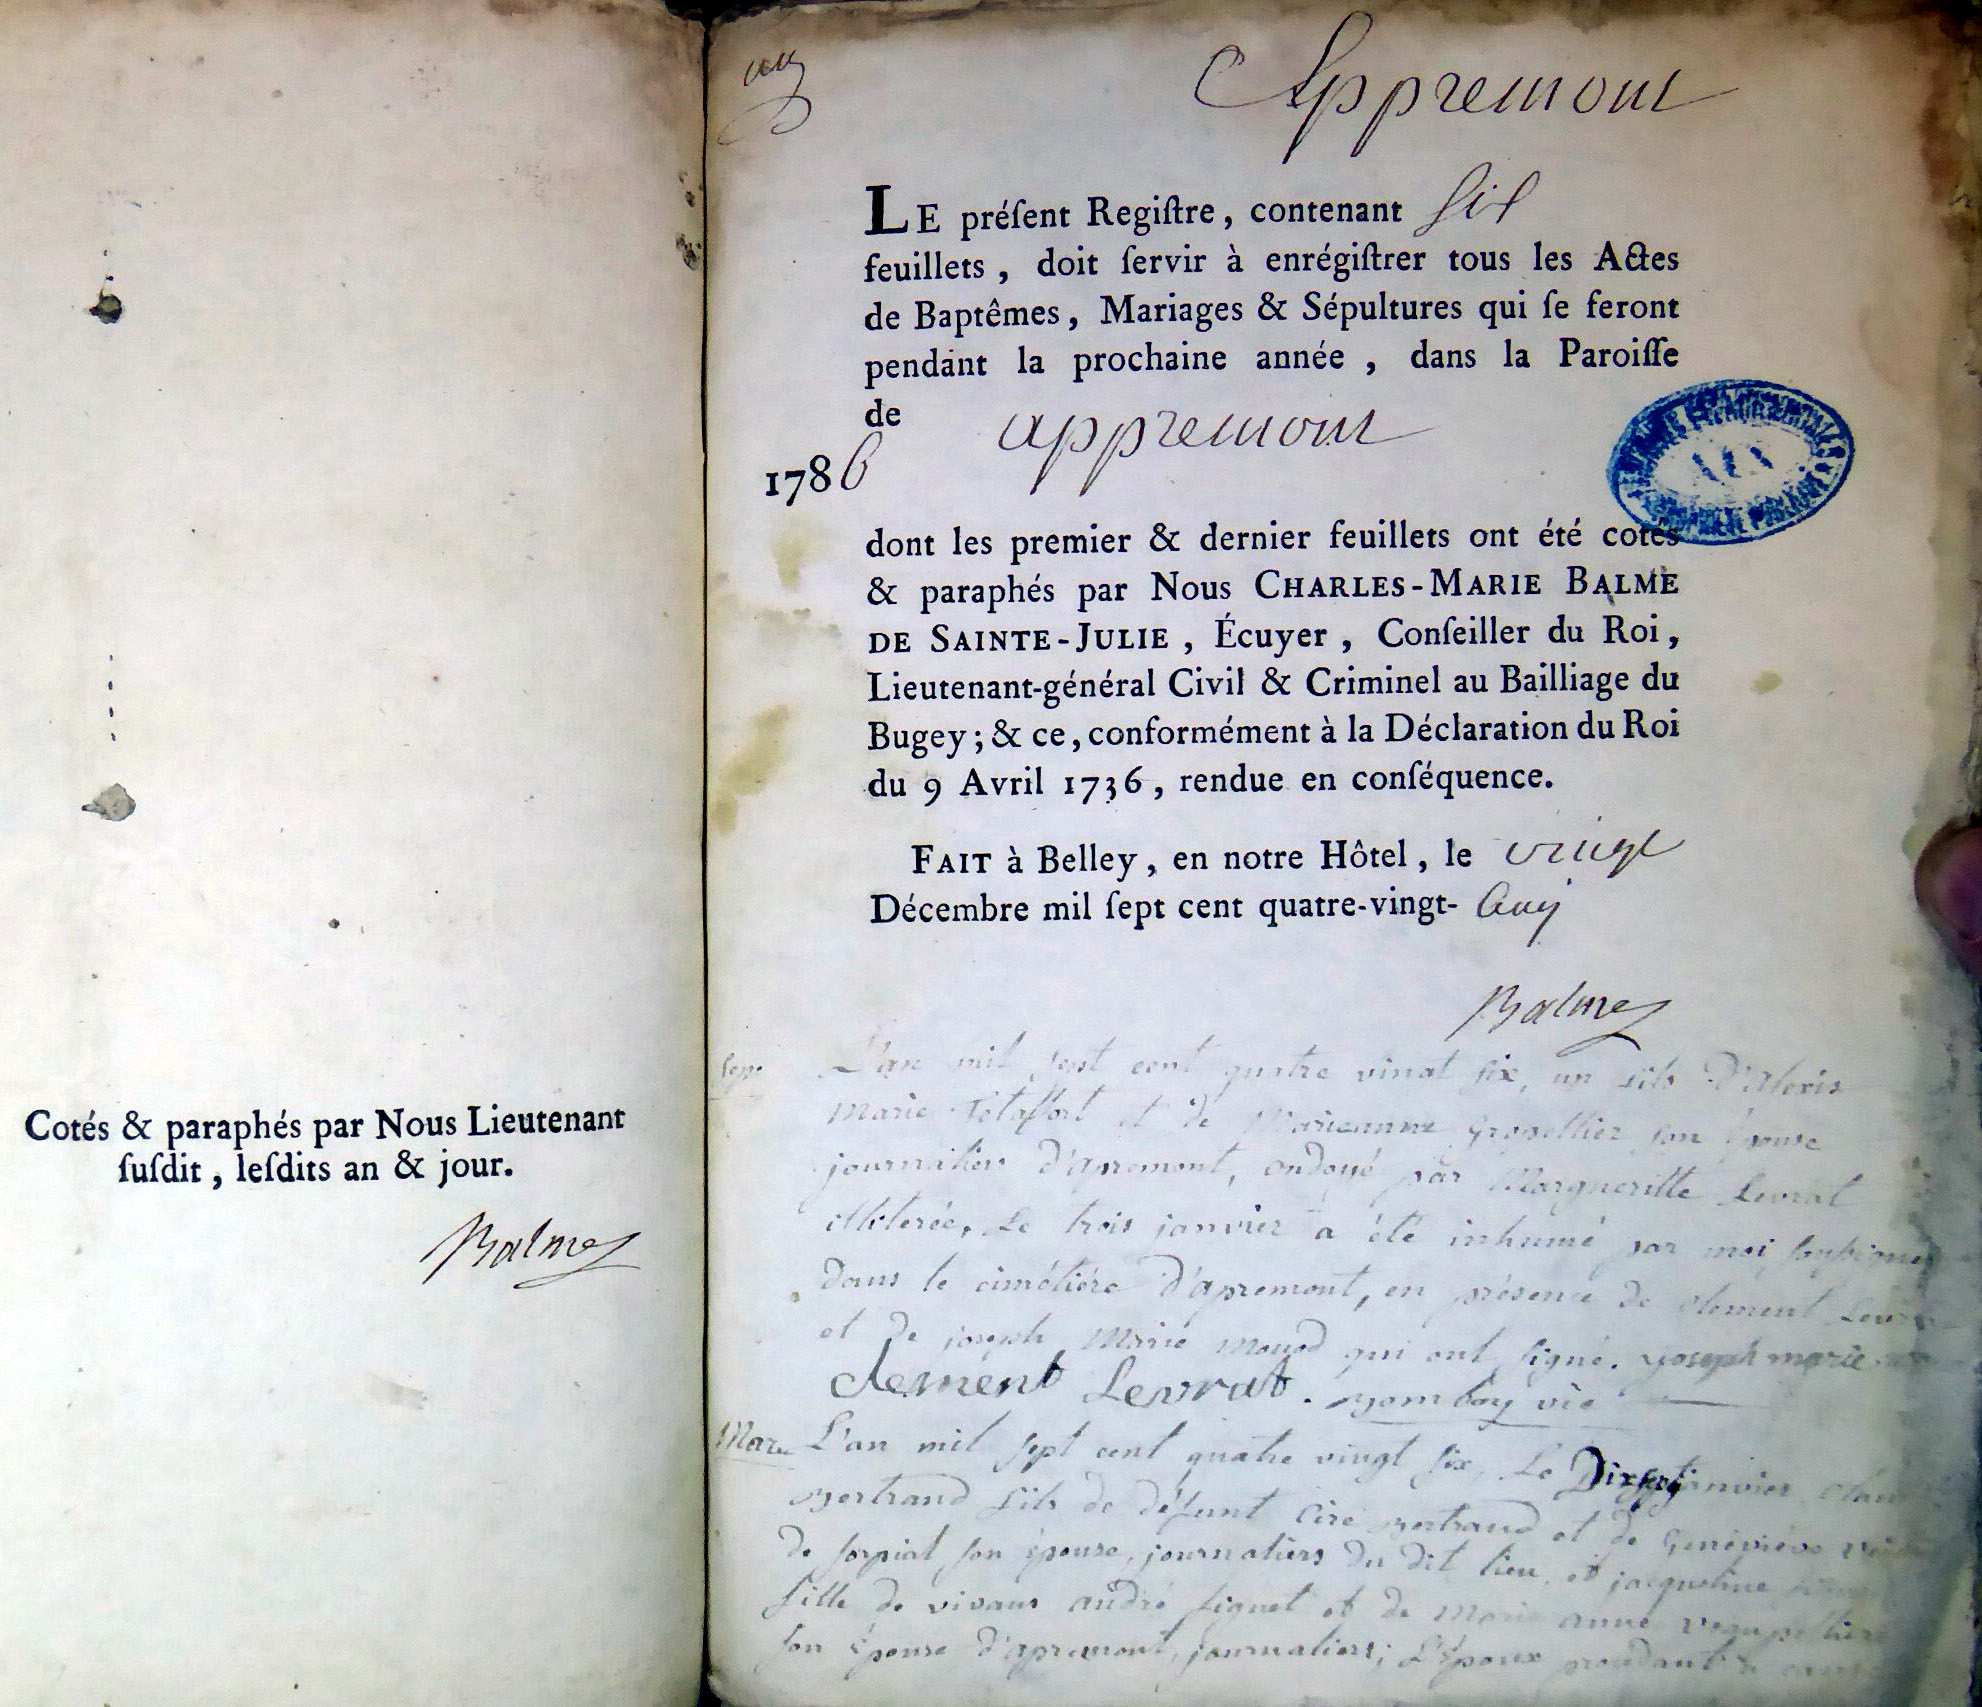 Cotés & paraphés par Nous Lieutenant
ſuſdit, leſdits an & jour.
Balme
Appremont
LE préſent Regiſtre, contenant Six
feuillets, doit ſervir à enrégiſtrer tous les Actes
de Baptêmes, Mariages & Sépultures qui ſe feront
pendant la prochaine année, dans la Paroiſſe
de appremont
1786
dont les premier & dernier feuillets ont été cotés
& paraphés par Nous CHARLES-MARIE BALME
DE SAINTE-JULIE, Écuyer, Conſeiller du Roi,
Lieutenant-général Civil & Criminel au Bailliage du
Bugey; & ce, conformément à la Déclaration du Roi
du 9 Avril 1736, rendue en conſéquence.
FAIT à Belley, en notre Hôtel, le vingt
Décembre mil ſept cent quatre-vingt- Cinq
Balme
L'an mil sept cent quatre vingt six, un fils D'alexis
Marie et de Marieanne son épouse
journaliers d'apremont, ondoyé par Margueritte Levrat
illiterée, Le trois janvier a été inhumé par moi soussigné
Dans le cimétiére D'apremont, en présence de clement Levrat
et de joseph Marie Monod qui ont signé. joseph marie
clement Levrat. vic
Mar. L'an mil sept cent quatre vingt six, Le Dixsept janvier
Bertrand fils de défunt Bertrand et de Geneviéve
de son épouse, journaliers Du dit lieu, et jacqueline
fille de vivans andré et de Marie anne
son épouse D'apremont, journaliers; L'époux